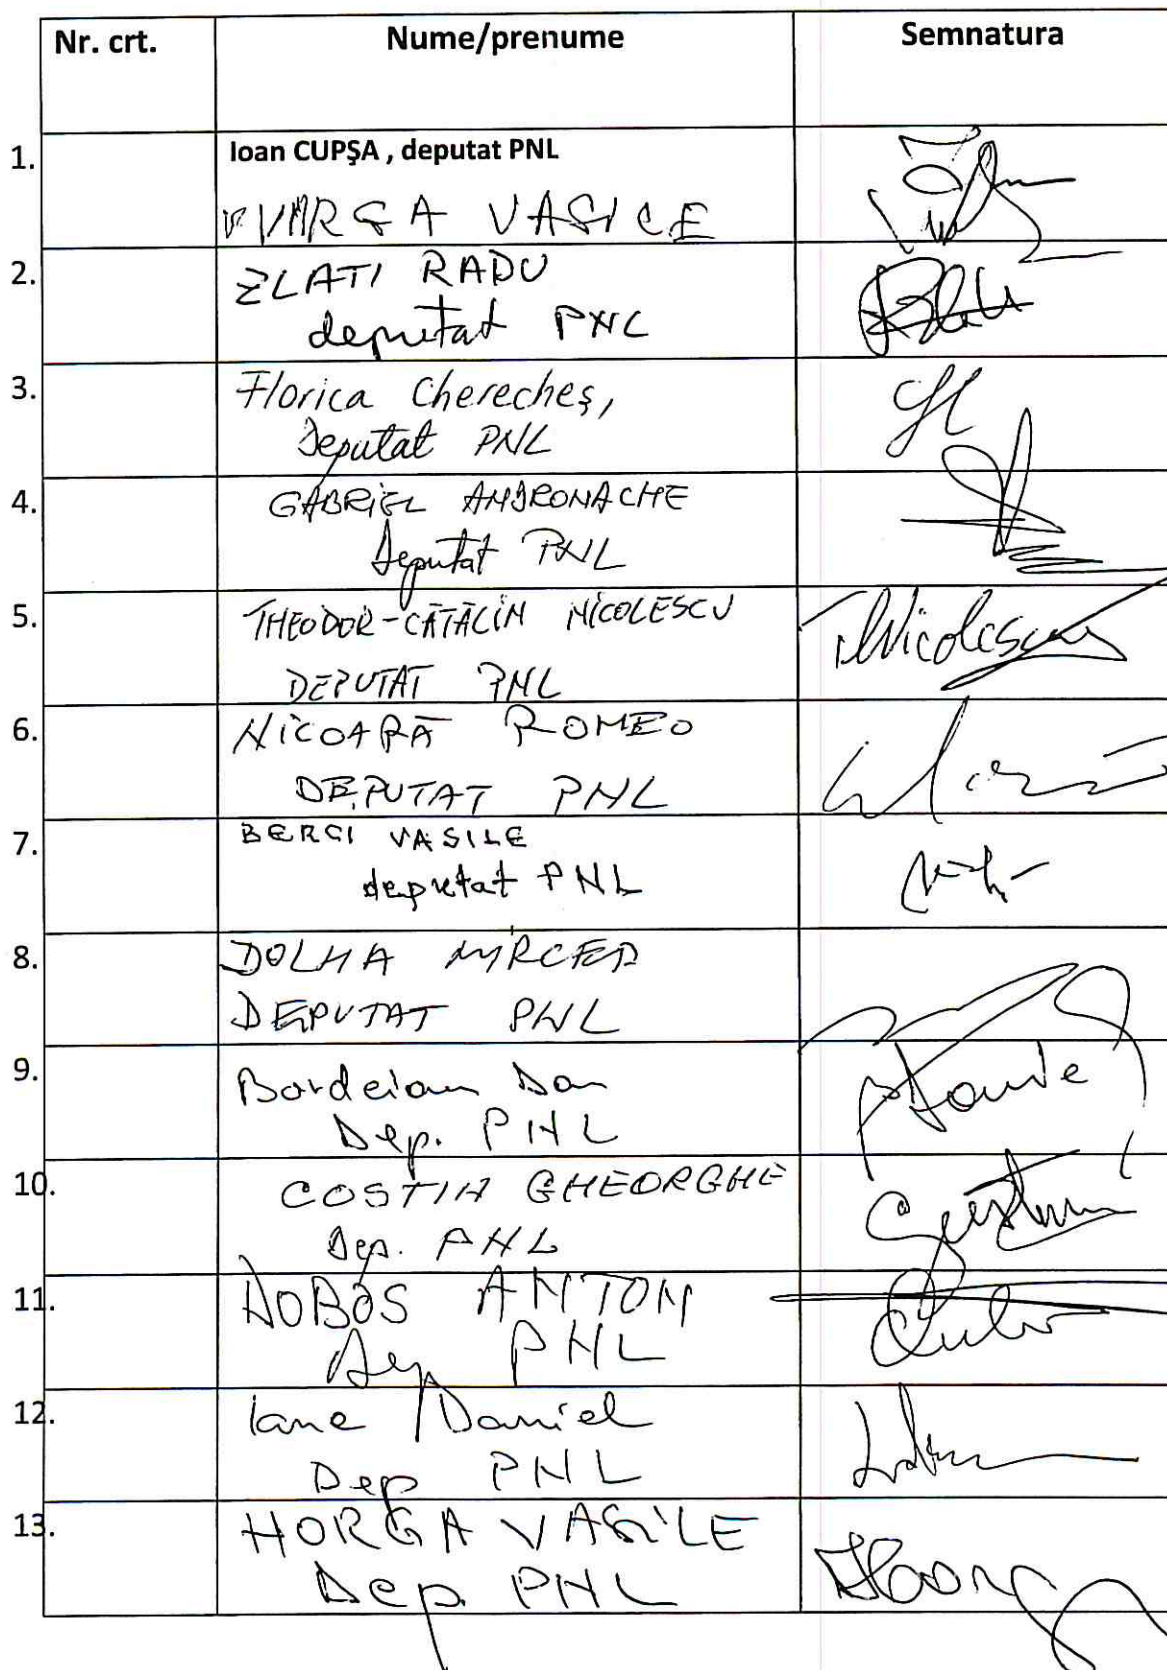 Nr. crt. Nume/prenume Semnatura
1. Ioan CUPŞA , deputat PNL
VARGA VASILE
2. ZLATI RADU
deputat PNL
3. Florica Cherecheş,
Deputat PNL
4. GABRIEL ANDRONACHE
Deputat PNL
5. THEODOR-CĂTĂLIN NICOLESCU TNicolescu
DEPUTAT PNL
6. NICOARĂ ROMEO
DEPUTAT PNL
7. BERCI VASILE
deputat PNL
8. DOLHA MIRCEA
DEPUTAT PNL
9. Bordeianu Dan
Dep. PNL
10. COSTIN GHEORGHE
Dep. PNL
11. DOBOS ANTON
Dep PNL
12. Iane Daniel
Dep PNL
13. HORGA VASILE
Dep. PNL